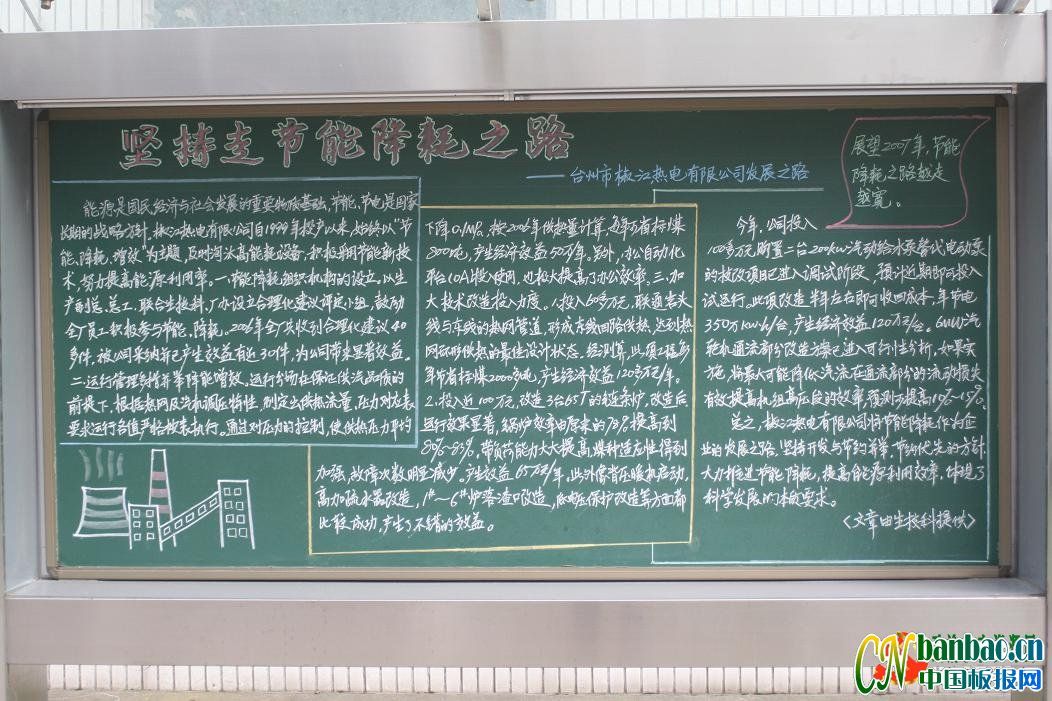 坚持走节能降耗之路
——台州市椒江热电有限公司发展之路
能源是国民经济与社会发展的重要物质基础,节能、节电是国家
长期的战略方针,椒江热电有限公司自1999年投产以来,始终以“节
能、降耗、增效”为主题,及时淘汰高能耗设备,积极采用节能新技
术,努力提高能源利用率。一、节能降耗组织机构的设立,以生
产副总、总工、联合生技科、厂办设立合理化建议评定小组,鼓励
全厂员工积极参与节能、降耗。2006年全厂共收到合理化建议40
多件,被公司采纳并已产生效益有近30件,为公司带来显著效益。
二、运行管理多措并举降能增效。运行分场在保证供汽品质的
前提下,根据热网及汽机调压特性,制定出供热流量、压力对应表
要求运行各值严格按表执行。通过对压力的控制,使供热压力平均
下降0.1MPa,按2006年供热量计算,每年可省标煤
800吨,产生经济效益50万/年。另外,办公自动化
平台(OA)投入使用,也极大提高了办公效率。三、加
大技术改造投入力度。1、投入60多万元,联通老头
线与东线的热网管道,形成东线回路供热,达到热
网环形供热的最佳设计状态。经测算,此项工程每
年节省标煤2000多吨,产生经济效益120多万元/年。
2、投入近100万元,改造3台65T的链条炉,改造后
运行效果显著,锅炉效率由原来的78%提高到
80%-83%,带负荷能力大大提高,煤种适应性得到
加强,故障次数明显减少。产生效益65万元/年。此外像背压暖机启动,
高加疏水器改造,1#~6#炉落渣口改造,低电压保护改造等方面都
比较成功,产生了不错的效益。
展望2007年,节能
降耗之路越走
越宽。
今年,公司投入
100多万元购置二台200KW汽动给水泵替代电动泵
的技改项目已进入调试阶段,预计近期即可投入
试运行。此项改造半年左右即可收回成本,年节电
350万KW·h/台,产生经济效益120万元/台。6MW汽
轮机通流部分改造方案已进入可行性分析,如果实
施,将最大可能降低汽流在通流部分的流动损失
有效提高机组高压段的效率,预测可提高10%-15%。
总之,椒江热电有限公司将节能降耗作为企
业的发展之路,坚持开发与节约并举,节约优先的方针,
大力推进节能降耗,提高能源利用效率,体现了
科学发展的本质要求。
〈文章由生技科提供〉
banbao.cn
中国板报网